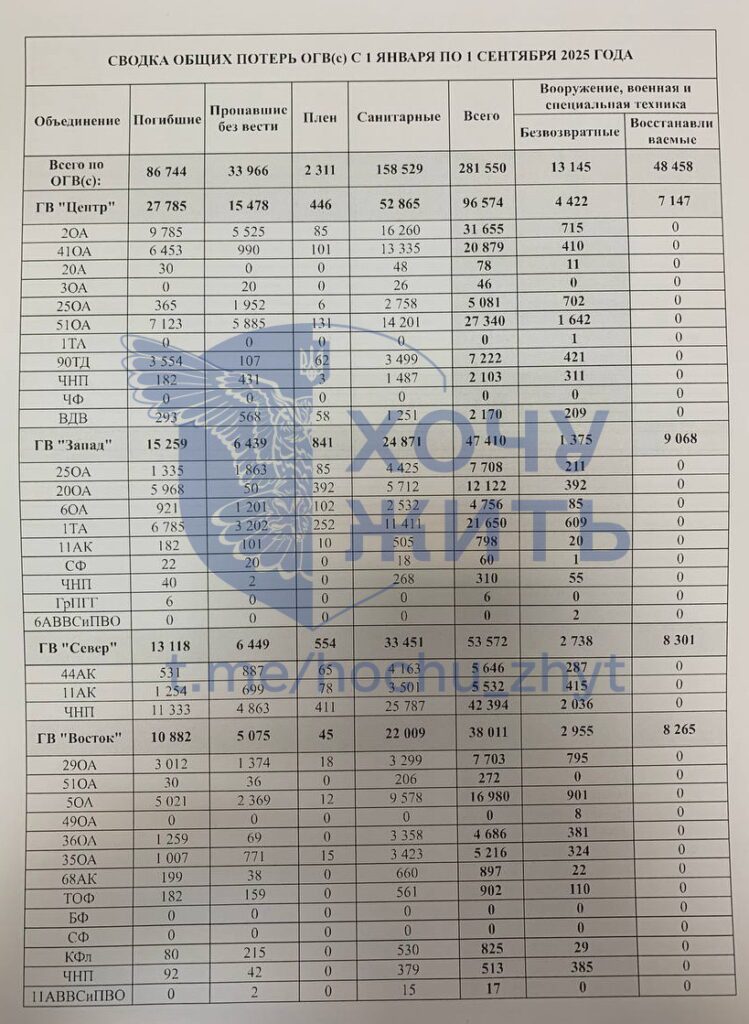 СВОДКА ОБЩИХ ПОТЕРЬ ОГВ(с) С 1 ЯНВАРЯ ПО 1 СЕНТЯБРЯ 2025 ГОДА
Объединение Погибшие Пропавшие без вести Плен Санитарные Всего Вооружение, военная и специальная техника
Безвозвратные Восстанавливаемые
Всего по ОГВ(с): 86 744 33 966 2 311 158 529 281 550 13 145 48 458
ГВ "Центр" 27 785 15 478 446 52 865 96 574 4 422 7 147
2ОА 9 785 5 525 85 16 260 31 655 715 0
41ОА 6 453 990 101 13 335 20 879 410 0
20А 30 0 0 48 78 11 0
3ОА 0 20 0 26 46 0 0
25ОА 365 1 952 6 2 758 5 081 702 0
51ОА 7 123 5 885 131 14 201 27 340 1 642 0
1ТА 0 0 0 0 0 1 0
90ТД 3 554 107 62 3 499 7 222 421 0
ЧНП 182 431 3 1 487 2 103 311 0
ЧФ 0 0 0 0 0 0 0
ВДВ 293 568 58 1 251 2 170 209 0
ГВ "Запад" 15 259 6 439 841 24 871 47 410 1 375 9 068
25ОА 1 335 1 863 85 4 425 7 708 211 0
20ОА 5 968 50 392 5 712 12 122 392 0
6ОА 921 1 201 102 2 532 4 756 85 0
1ТА 6 785 3 202 252 11 411 21 650 609 0
11АК 182 101 10 505 798 20 0
СФ 22 20 0 18 60 1 0
ЧНП 40 2 0 268 310 55 0
ГрПГГ 6 0 0 0 6 0 0
6АВВСиПВО 0 0 0 0 0 2 0
ГВ "Север" 13 118 6 449 554 33 451 53 572 2 738 8 301
44АК 531 887 65 4 163 5 646 287 0
11АК 1 254 699 78 3 501 5 532 415 0
ЧНП 11 333 4 863 411 25 787 42 394 2 036 0
ГВ "Восток" 10 882 5 075 45 22 009 38 011 2 955 8 265
29ОА 3 012 1 374 18 3 299 7 703 795 0
51ОА 30 36 0 206 272 0 0
5ОА 5 021 2 369 12 9 578 16 980 901 0
49ОА 0 0 0 0 0 8 0
36ОА 1 259 69 0 3 358 4 686 381 0
35ОА 1 007 771 15 3 423 5 216 324 0
68АК 199 38 0 660 897 22 0
ТОФ 182 159 0 561 902 110 0
БФ 0 0 0 0 0 0 0
СФ 0 0 0 0 0 0 0
КФл 80 215 0 530 825 29 0
ЧНП 92 42 0 379 513 385 0
11АВВСиПВО 0 2 0 15 17 0 0
ХОЧУ
ЖИТЬ
t.me/hochu_zhyt